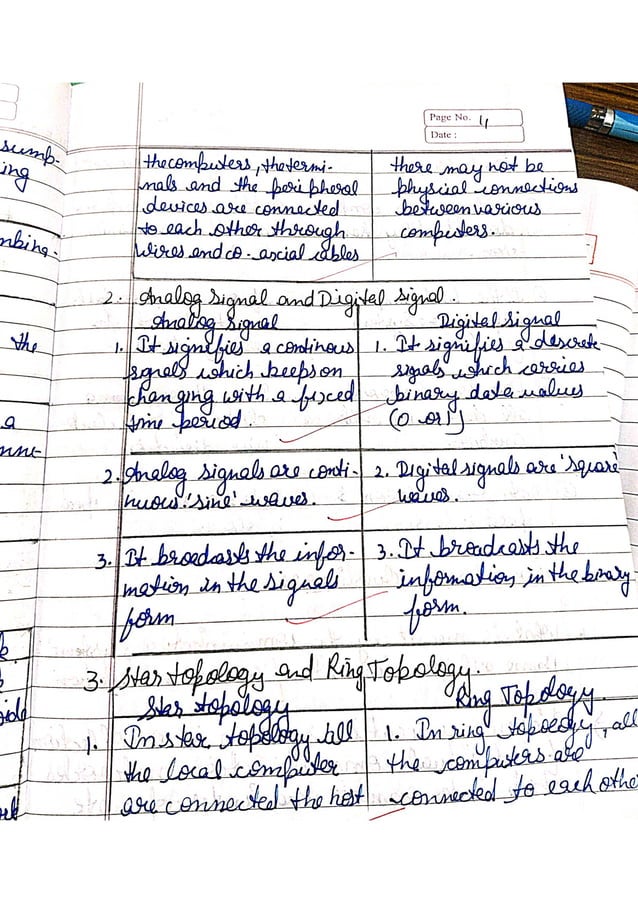 Page No. 4
Date :
sump-
ing
nbing-
the
a
nne-
the computers, the termi-
nals and the peripheral
devices are connected
to each other through
wires and co-axial cables
there may not be
physical connections
between various
computers.
2. Analog Signal and Digital Signal.
Analog Signal
1. It signifies a continous
signals which keeps on
changing with a fixed
time period.
Digital Signal
1. It signifies a descrete
signals which carries
binary data values
(0 or 1)
2. Analog signals are conti-
nuous 'sine' waves.
2. Digital signals are 'square'
waves.
3. It broadcasts the infor-
mation in the signals
form
3. It broadcasts the
information in the binary
form.
3. Star topology and Ring Topology.
Star topology
1. In star topology all
the local computer
are connected the host
Ring Topology.
1. In ring topology, all
the computers are
connected to each othe